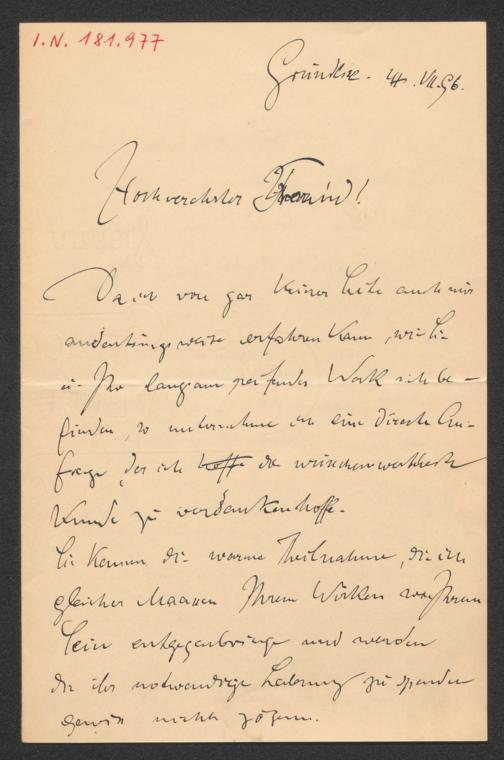 I.N. 181.977
Grundlsee. 4. VII. 96.
Hochverehrter Freund!
Da ich von gar keiner Seite auch nur
andeutungsweise erfahren kann, wie Sie
u. Ihr langsam reifendes Werk sich be-
finden, so unternehme ich eine directe An-
frage, der ich hoffe die wünschenswertheste
Kunde zu verdanken hoffe.
Sie kennen die warme Theilnahme, die ich
gleicher Maassen Ihrem Wirken wie Ihrem
Sein entgegenbringe und werden
die ihr notwendige Labung zu spenden
gewiss nicht zögern.